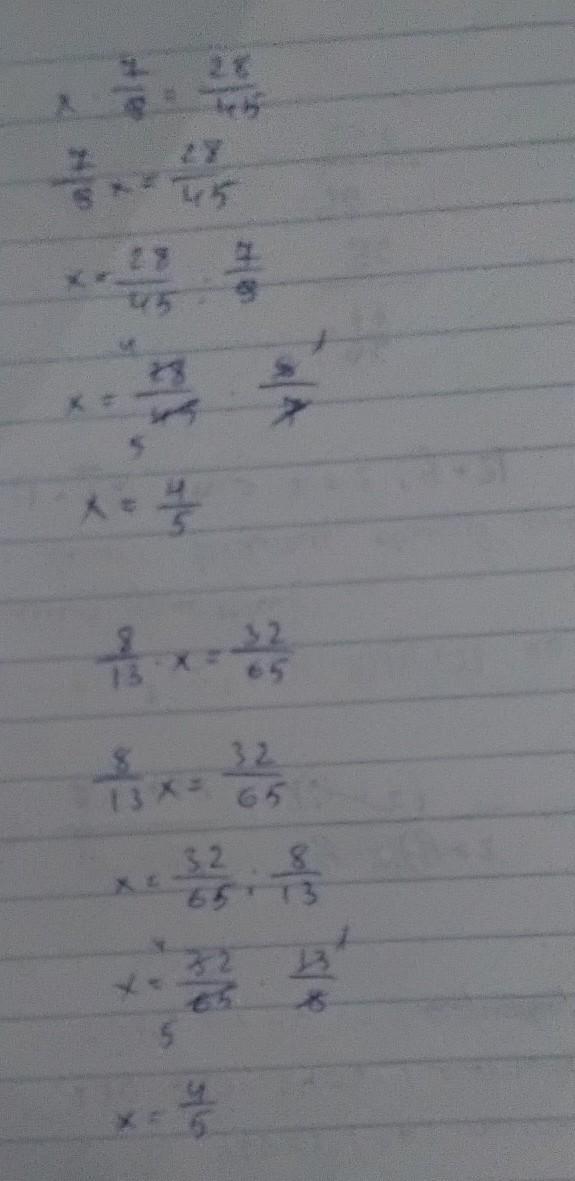 x · 7/9 = 28/45
7/9 x = 28/45
x = 28/45 : 7/9
4 1
x = 28/45 · 9/7
5
x = 4/5
8/13 · x = 32/65
8/13 x = 32/65
x = 32/65 : 8/13
4 1
x = 32/65 · 13/8
5
x = 4/5